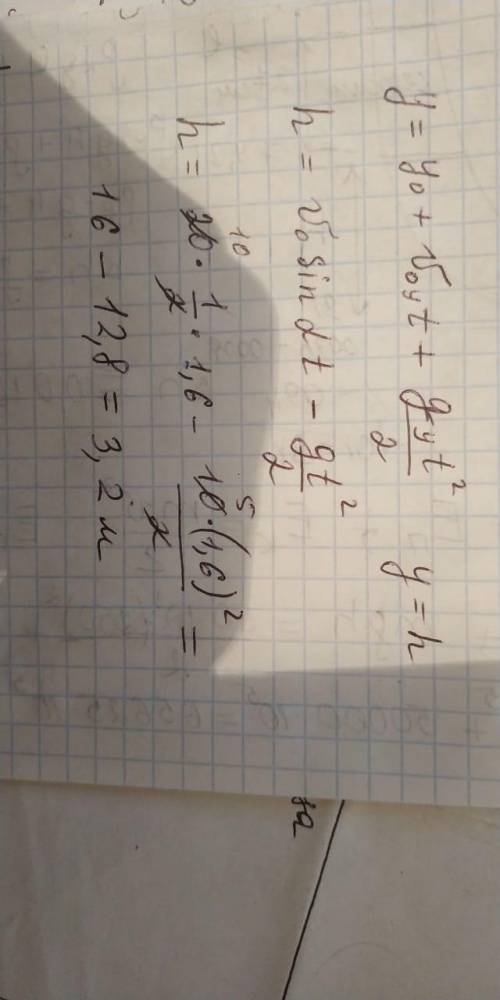 y = y₀ + v₀yt + gyt²/2 y = h
h = v₀ sin αt − gt²/2
h = 20 · 1/2 · 1,6 − 10·(1,6)²/2 =
10 5
16 − 12,8 = 3,2 м